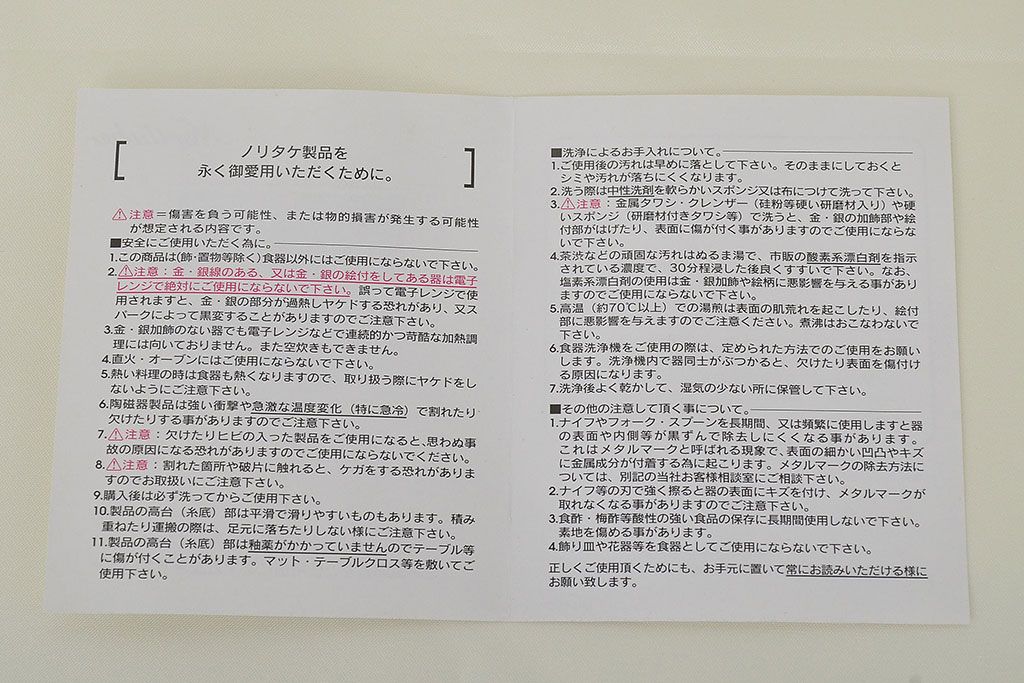 ノリタケ製品を
永く御愛用いただくために。
⚠注意＝傷害を負う可能性、または物的損害が発生する可能性
が想定される内容です。
■安全にご使用いただく為に。
1.この商品は(飾・置物等除く)食器以外にはご使用にならないで下さい。
2.⚠注意：金・銀線のある、又は金・銀の絵付をしてある器は電子
レンジで絶対にご使用にならないで下さい。誤って電子レンジで使
用されますと、金・銀の部分が過熱しヤケドする恐れがあり、又ス
パークによって黒変することがありますのでご注意下さい。
3.金・銀加飾のない器でも電子レンジなどで連続的かつ苛酷な加熱調
理には向いておりません。また空炊きもできません。
4.直火・オーブンにはご使用にならないで下さい。
5.熱い料理の時は食器も熱くなりますので、取り扱う際にヤケドをし
ないようにご注意下さい。
6.陶磁器製品は強い衝撃や急激な温度変化（特に急冷）で割れたり
欠けたりする事がありますのでご注意下さい。
7.⚠注意：欠けたりヒビの入った製品をご使用になると、思わぬ事
故の原因になる恐れがありますのでご使用にならないでください。
8.⚠注意：割れた箇所や破片に触れると、ケガをする恐れがありま
すのでお取扱いにご注意下さい。
9.購入後は必ず洗ってからご使用下さい。
10.製品の高台（糸底）部は平滑で滑りやすいものもあります。積み
重ねたり運搬の際は、足元に落ちたりしない様にご注意下さい。
11.製品の高台（糸底）部は釉薬がかかっていませんのでテーブル等
に傷が付くことがあります。マット・テーブルクロス等を敷いてご
使用下さい。
■洗浄によるお手入れについて。
1.ご使用後の汚れは早めに落として下さい。そのままにしておくと
シミや汚れが落ちにくくなります。
2.洗う際は中性洗剤を軟らかいスポンジ又は布につけて洗って下さい。
3.⚠注意：金属タワシ・クレンザー（硅粉等硬い研磨材入り）や硬
いスポンジ（研磨材付きタワシ等）で洗うと、金・銀の加飾部や絵
付部がはげたり、表面に傷が付く事がありますのでご使用にならな
いで下さい。
4.茶渋などの頑固な汚れはぬるま湯で、市販の酸素系漂白剤を指示
されている濃度で、30分程浸した後良くすすいで下さい。なお、
塩素系漂白剤の使用は金・銀加飾や絵柄に悪影響を与える事があり
ますのでご使用にならないで下さい。
5.高温（約70℃以上）での湯煎は表面の肌荒れを起こしたり、絵付
部に悪影響を与えますのでご注意ください。煮沸はおこなわないで
下さい。
6.食器洗浄機をご使用の際は、定められた方法でのご使用をお願い
します。洗浄機内で器同士がぶつかると、欠けたり表面を傷付け
る原因になります。
7.洗浄後よく乾かして、湿気の少ない所に保管して下さい。
■その他の注意して頂く事について。
1.ナイフやフォーク・スプーンを長期間、又は頻繁に使用しますと器
の表面や内側等が黒ずんで除去しにくくなる事があります。
これはメタルマークと呼ばれる現象で、表面の細かい凹凸やキズ
に金属成分が付着する為に起こります。メタルマークの除去方法に
ついては、別記の当社お客様相談室にご相談下さい。
2.ナイフ等の刃で強く擦ると器の表面にキズを付け、メタルマークが
取れなくなる事がありますのでご注意下さい。
3.食酢・梅酢等酸性の強い食品の保存に長期間使用しないで下さい。
素地を傷める事があります。
4.飾り皿や花器等を食器としてご使用にならないで下さい。
正しくご使用頂くためにも、お手元に置いて常にお読みいただける様に
お願い致します。